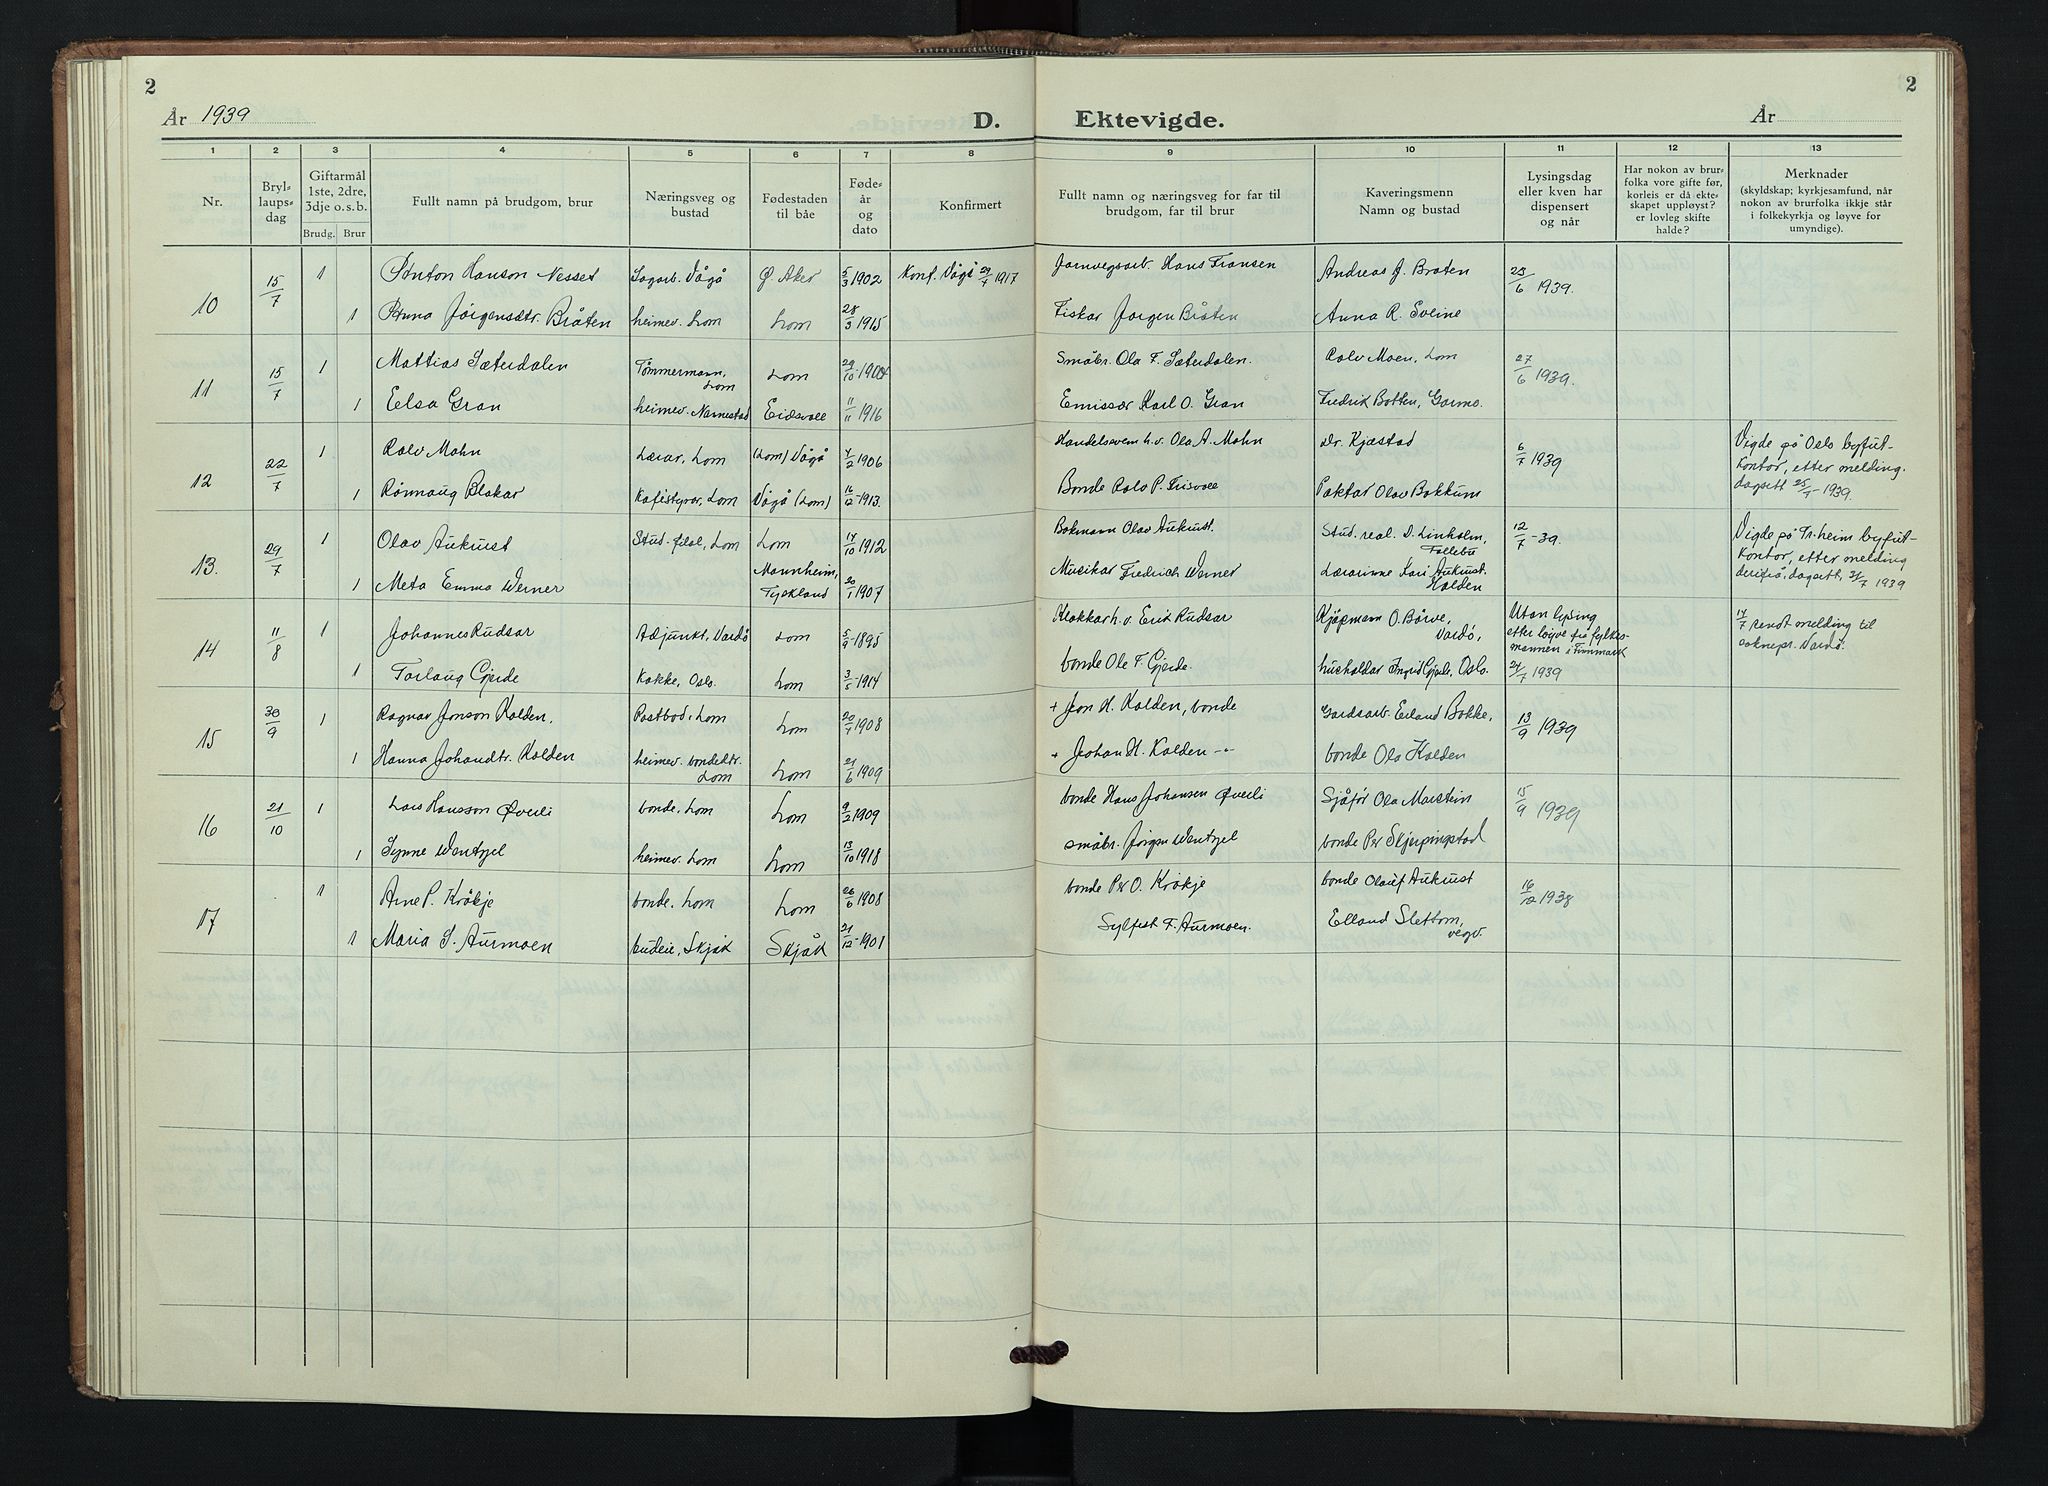 2
År 1939
D.
Ektevigde.
År
2
1 2 3 4 5 6 7 8 9 10 11 12 13
Nr.
Bryl-
laups-
dag
Giftarmål
1ste, 2dre,
3dje o.s.b.
Brudg. Brur
Fullt namn på brudgom, brur
Næringsveg og
bustad
Fødestaden
til båe
Føde-
år
og
dato
Konfirmert
Fullt namn og næringsveg for far til
brudgom, far til brur
Kaveringsmenn
Namn og bustad
Lysingsdag
eller kven har
dispensert
og når
Har nokon av brur-
folka vore gifte før,
korleis er då ekte-
skapet uppløyst?
er lovleg skifte
halde?
Merknader
(skyldskap; kyrkjesamfund, når
nokon av brurfolka ikkje står
i folkekyrkja og løyve for
umyndige).
10 15/7 1 Anton Hanson Nesset Sagarb. Vågå Ø. Aker 5/3 1902 Konf. Vågå 29/7 1917 Jarnvegsarb. Hans Fransen Andreas J. Bråten 23/6 1939.
1 Anna Jørgensdtr. Bråten heimev. Lom Lom 28/3 1915 Fiskar Jørgen Bråten Anna R. Sveine
11 15/7 1 Mattias Sæterdalen Tømmermann, Lom Lom 29/10 1904 Småbr. Ola F. Sæterdalen. Rolv Moen, Lom 27/6 1939.
1 Eelsa Gran heimev. Narnestad Eidsvoll 11/11 1916 Emissær Karl O. Gran Fredrik Botten, Garmo.
12 22/7 1 Rolv Mohn Lærar, Lom (Lom) Vågå 4/2 1906 Handelsvem h.v. Ola A. Mohn Dr. Kjæstad 6/7 1939 Vigde på Oslo byfut-
kontor, etter melding.
dagsett 25/7 - 1939.
1 Rønnaug Blakar Kafestyrar, Lom Vågå (Lom) 16/12 - 1913. Bonde Rolv P. Frisvoll Paktar Olav Bakkum
13. 29/7 1 Olav Aukrust Stud. filol., Lom Lom 14/10 1912 Bokmann Olav Aukrust. Stud. real. D. Linholm, Follebu 12/7 - 39. Vigde på Tr.heim byfut-
kontor, etter melding
derifrå, dagsett, 31/7 1939
1 Meta Emma Werner Mannheim, Tyskland 20/1 1907 Musikar Fredrich Werner Lærarinne Kari Aukrust. Holden
14 11/8 1 Johannes Rudsar Adjunkt, Vardø Lom 5/9 - 1895 Klokkar h.v. Erik Rudsar Kjøpmann O. Børve, Vardø, Utan lysing
etter løyve frå fylkes-
mannen i Finnmark
24/7 1939
17/7 sendt melding til
soknepr. Vardø.
1 Torlaug Gjerde Kokke, Oslo. Lom 3/5 - 1914 bonde Ole F. Gjerde. husholdar Ingrid Gjerde, Oslo.
15 30/9 1 Ragnar Jonson Kolden, Postbod, Lom Lom 20/7 1908 + Jon H. Kolden, bonde Gardsarb. Erland Bakke, 13/9 1939
1 Hanna Johandtr. Kolden heimev. bondedtr. Lom Lom 21/6 1909 + Johan H. Kolden -"- bonde Ola Kolden
16 21/10 1 Lars Hansson Øverli bonde, Lom Lom 9/2 1909 bonde Hans Johansen Øverli Sjåfør Ola Marstein 15/9 1939
1 Synne Wentzel heimev. Lom Lom 13/10 1918 småbr. Jørgen Wentzel bonde Per Skjerpingstad
17 1 Arne P. Kråkje bonde, Lom Lom 26/6 1908 bonde Per O. Kråkje bonde Olauf Aukrust 16/12 1938
1 Maria S. Aurmoen budeie, Skjåk Skjåk 21/12 - 1901 Sylfest F. Aurmoen. Elland Slettom, vegv.